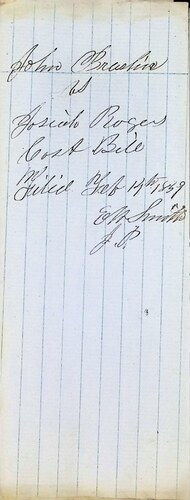 John Braslin
vs
Josiah Rogers
Cost Bill
Filed Feb 14th 1859
E W Smith
J. P.